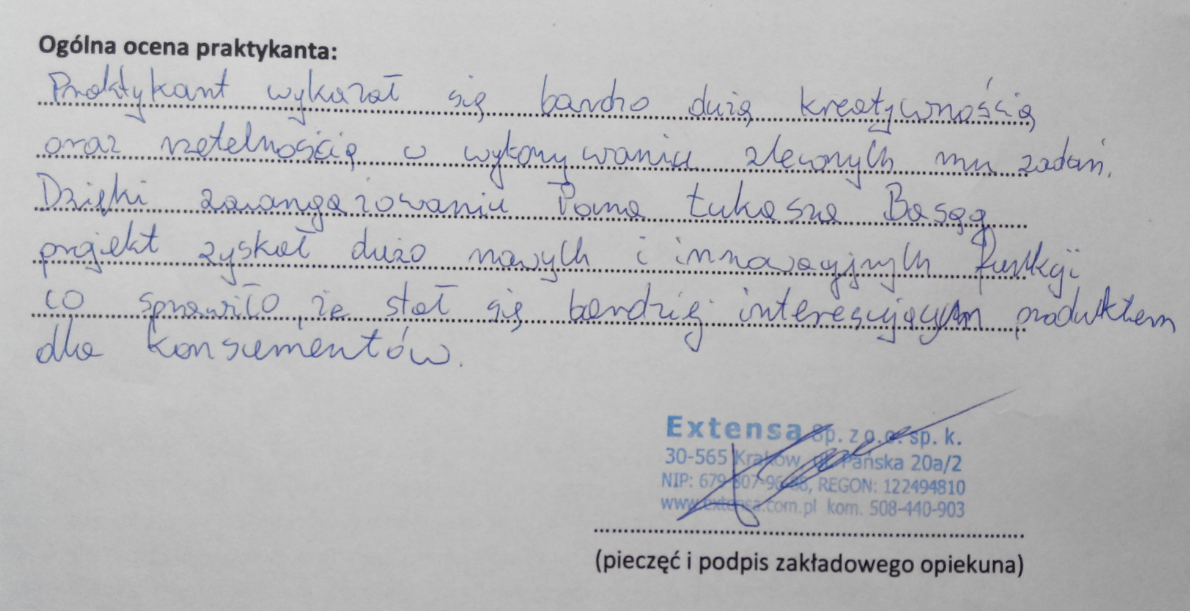 Ogólna ocena praktykanta:
Praktykant wykazał się bardzo dużą kreatywnością
oraz rzetelnością w wykonywaniu zleconych mu zadań.
Dzięki zaangażowaniu Pana Łukasza Basąg
projekt zyskał dużo nowych i innowacyjnych funkcji
co sprawiło, że stał się bardziej interesującym produktem
dla konsumentów.
Extensa sp. z o.o. sp. k.
30-565 Kraków, Pańska 20a/2
NIP: REGON: 122494810
www.extensa.com.pl kom. 508-440-903
(pieczęć i podpis zakładowego opiekuna)